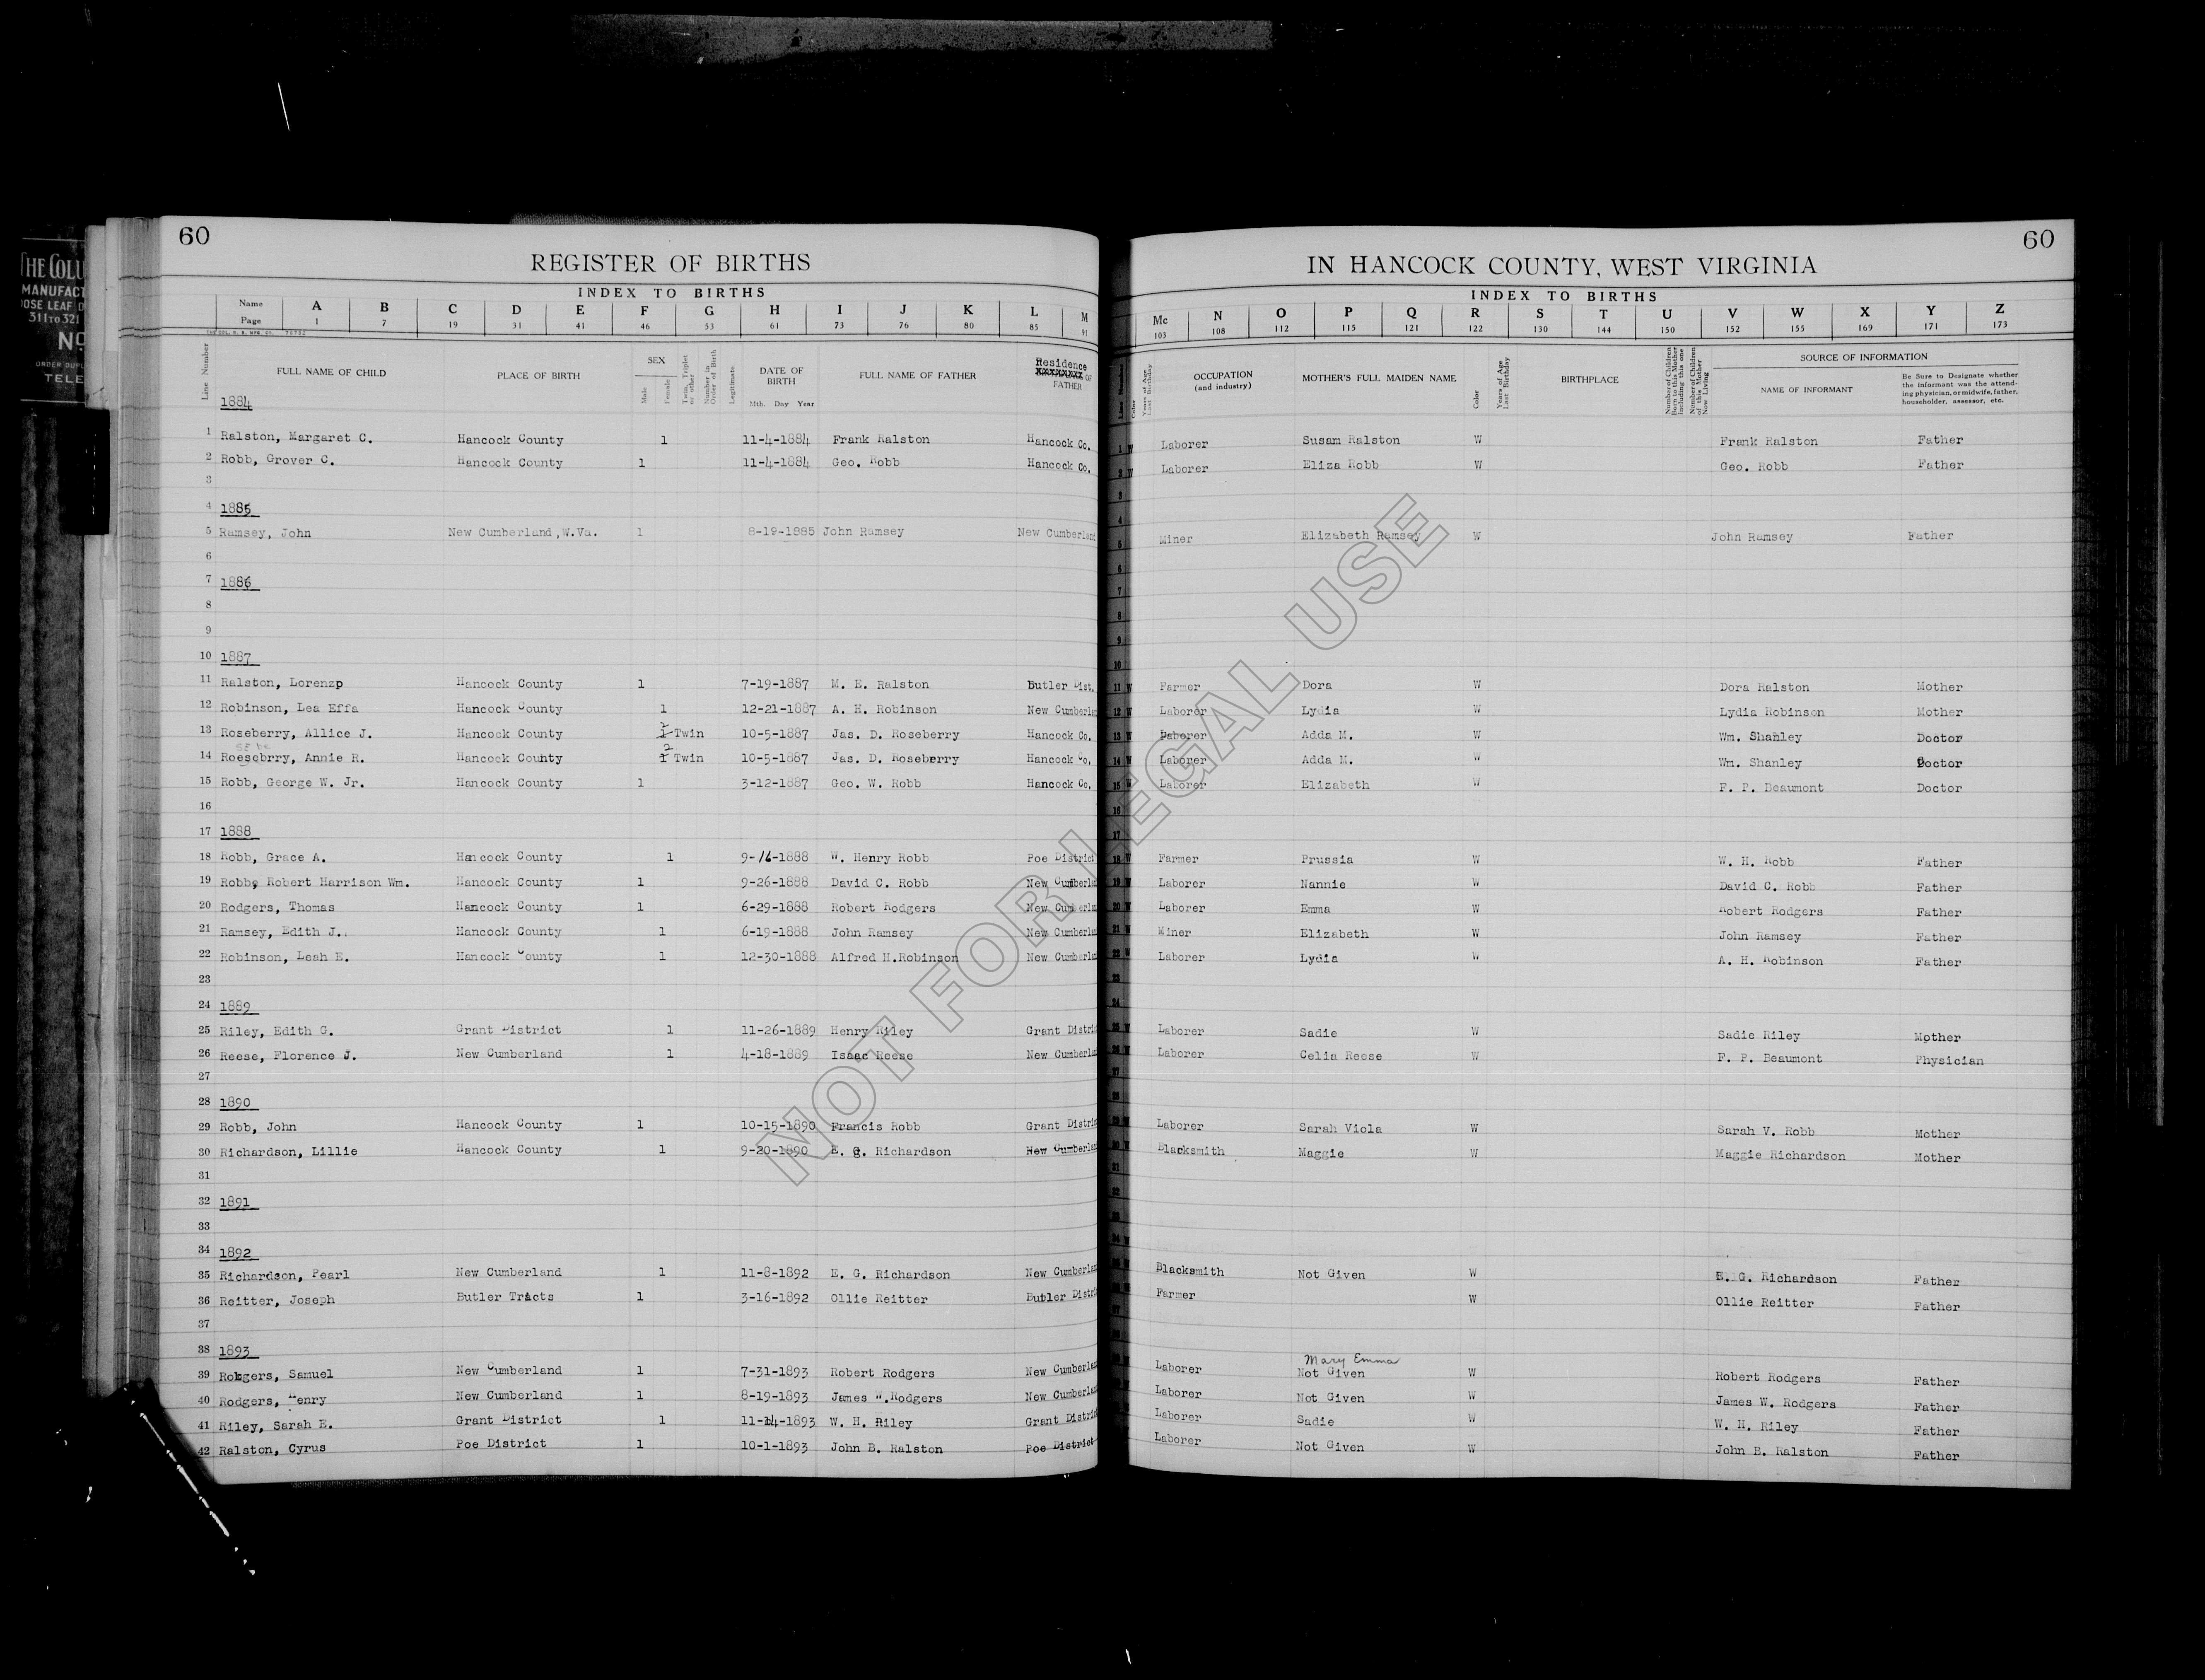 THE COLU
MANUFACT
OOSE LEAF
311 TO 321
NO
ORDER DUPL
TELE
60
REGISTER OF BIRTHS
INDEX TO BIRTHS
Name A B C D E F G H I J K L M
Page 1 7 19 31 41 46 53 61 73 76 80 85 91
Line Number FULL NAME OF CHILD PLACE OF BIRTH SEX Male Female Twin, Triplet or other Number in Order of Birth Legitimate DATE OF BIRTH Mth. Day Year FULL NAME OF FATHER Residence OF FATHER
1884
1 Ralston, Margaret C. Hancock County 1 11-4-1884 Frank Ralston Hancock Co.
2 Robb, Grover C. Hancock County 1 11-4-1884 Geo. Robb Hancock Co.
3
4 1885
5 Ramsey, John New Cumberland, W.Va. 1 8-19-1885 John Ramsey New Cumberland
6
7 1886
8
9
10 1887
11 Ralston, Lorenzp Hancock County 1 7-19-1887 M. E. Ralston Butler Dist.
12 Robinson, Lea Effa Hancock County 1 12-21-1887 A. H. Robinson New Cumberlan
13 Roseberry, Allice J. Hancock County 2 Twin 10-5-1887 Jas. D. Roseberry Hancock Co.
14 Roesebrry, Annie R. Hancock County 2 Twin 10-5-1887 Jas. D. Roseberry Hancock Co.
15 Robb, George W. Jr. Hancock County 1 3-12-1887 Geo. W. Robb Hancock Co.
16
17 1888
18 Robb, Grace A. Hancock County 1 9-16-1888 W. Henry Robb Poe District
19 Robb, Robert Harrison Wm. Hancock County 1 9-26-1888 David C. Robb New Cumberlan
20 Rodgers, Thomas Hancock County 1 6-29-1888 Robert Rodgers New Cumberlan
21 Ramsey, Edith J. Hancock County 1 6-19-1888 John Ramsey New Cumberlan
22 Robinson, Leah E. Hancock County 1 12-30-1888 Alfred H.Robinson New Cumberlan
23
24 1889
25 Riley, Edith G. Grant District 1 11-26-1889 Henry Riley Grant Distric
26 Reese, Florence J. New Cumberland 1 4-18-1889 Isaac Reese New Cumberlan
27
28 1890
29 Robb, John Hancock County 1 10-15-1890 Francis Robb Grant Distric
30 Richardson, Lillie Hancock County 1 9-20-1890 E. G. Richardson New Cumberlan
31
32 1891
33
34 1892
35 Richardson, Pearl New Cumberland 1 11-8-1892 E. G. Richardson New Cumberlan
36 Reitter, Joseph Butler Tracts 1 3-16-1892 Ollie Reitter Butler Distri
37
38 1893
39 Rodgers, Samuel New Cumberland 1 7-31-1893 Robert Rodgers New Cumberlan
40 Rodgers, Henry New Cumberland 1 8-19-1893 James W.Rodgers New Cumberlan
41 Riley, Sarah E. Grant District 1 11-14-1893 W. H. Riley Grant Distric
42 Ralston, Cyrus Poe District 1 10-1-1893 John B. Ralston Poe District
60
IN HANCOCK COUNTY, WEST VIRGINIA
INDEX TO BIRTHS
Mc N O P Q R S T U V W X Y Z
103 108 112 115 121 122 130 144 150 152 155 169 171 173
Line Number Color Years of Age Last Birthday OCCUPATION (and industry) MOTHER'S FULL MAIDEN NAME Color Years of Age Last Birthday BIRTHPLACE Number of Children Born to this Mother Including this one Number of Children of this Mother Now Living SOURCE OF INFORMATION NAME OF INFORMANT Be Sure to Designate whether the informant was the attending physician, or midwife, father, householder, assessor, etc.
1 W Laborer Susam Ralston W Frank Ralston Father
2 W Laborer Eliza Robb W Geo. Robb Father
3
4
5 Miner Elizabeth Ramsey W John Ramsey Father
6
7
8
9
10
11 W Farmer Dora W Dora Ralston Mother
12 W Laborer Lydia W Lydia Robinson Mother
13 W Laborer Adda M. W Wm. Shanley Doctor
14 W Laborer Adda M. W Wm. Shanley Doctor
15 W Laborer Elizabeth W F. P. Beaumont Doctor
16
17
18 W Farmer Prussia W W. H. Robb Father
19 W Laborer Nannie W David C. Robb Father
20 W Laborer Emma W Robert Rodgers Father
21 W Miner Elizabeth W John Ramsey Father
22 W Laborer Lydia W A. H. Robinson Father
23
24
25 W Laborer Sadie W Sadie Riley Mother
26 W Laborer Celia Reese W F. P. Beaumont Physician
27
28
29 W Laborer Sarah Viola W Sarah V. Robb Mother
30 W Blacksmith Maggie W Maggie Richardson Mother
31
32
33
34
Blacksmith Not Given W E. G. Richardson Father
Farmer W Ollie Reitter Father
Mary Emma
Laborer Not Given W Robert Rodgers Father
Laborer Not Given W James W. Rodgers Father
Laborer Sadie W W. H. Riley Father
Laborer Not Given W John B. Ralston Father
NOT FOR LEGAL USE